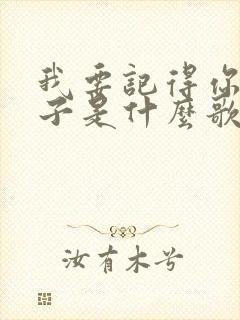 我要記得你
子是什麼歌
汝有木兮